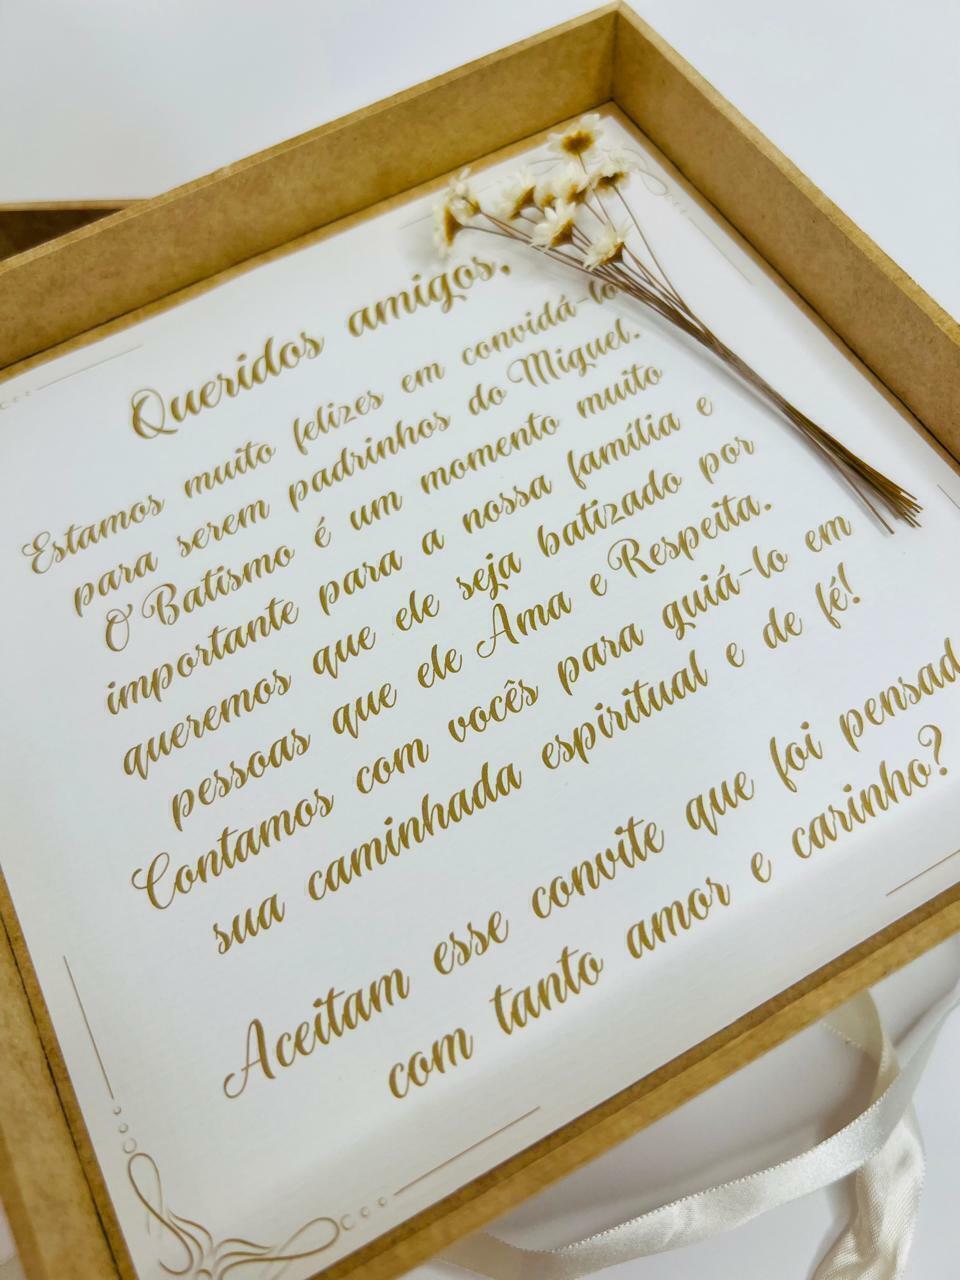 Queridos amigos,
Estamos muito felizes em convidá-lo
para serem padrinhos do Miguel.
O Batismo é um momento muito
importante para a nossa família e
queremos que ele seja batizado por
pessoas que ele Ama e Respeita.
Contamos com vocês para guiá-lo em
sua caminhada espiritual e de fé!
Aceitam esse convite que foi pensad
com tanto amor e carinho?